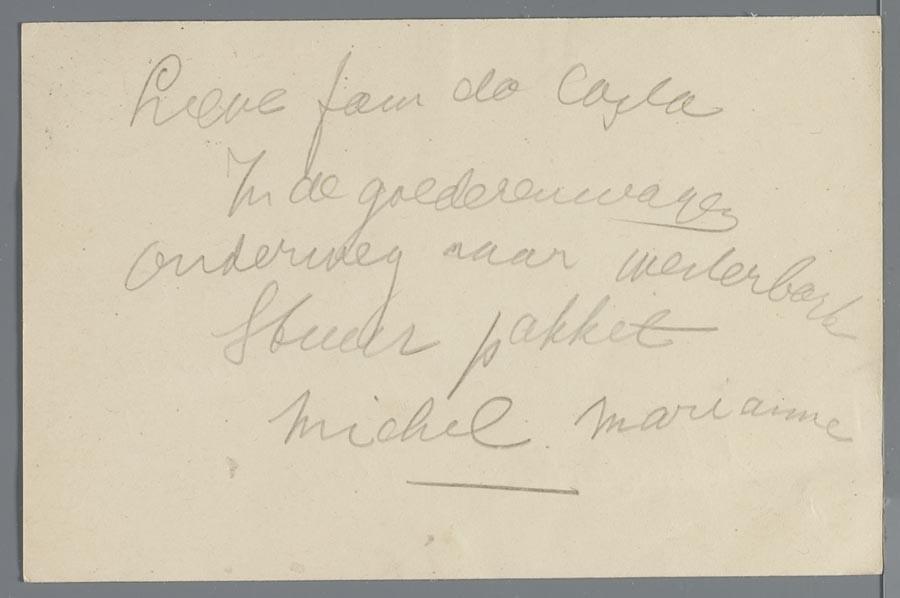 Lieve fam da Costa
In de goederenwagen
onderweg naar westerbork
Stuur pakket
Michel. Marianne